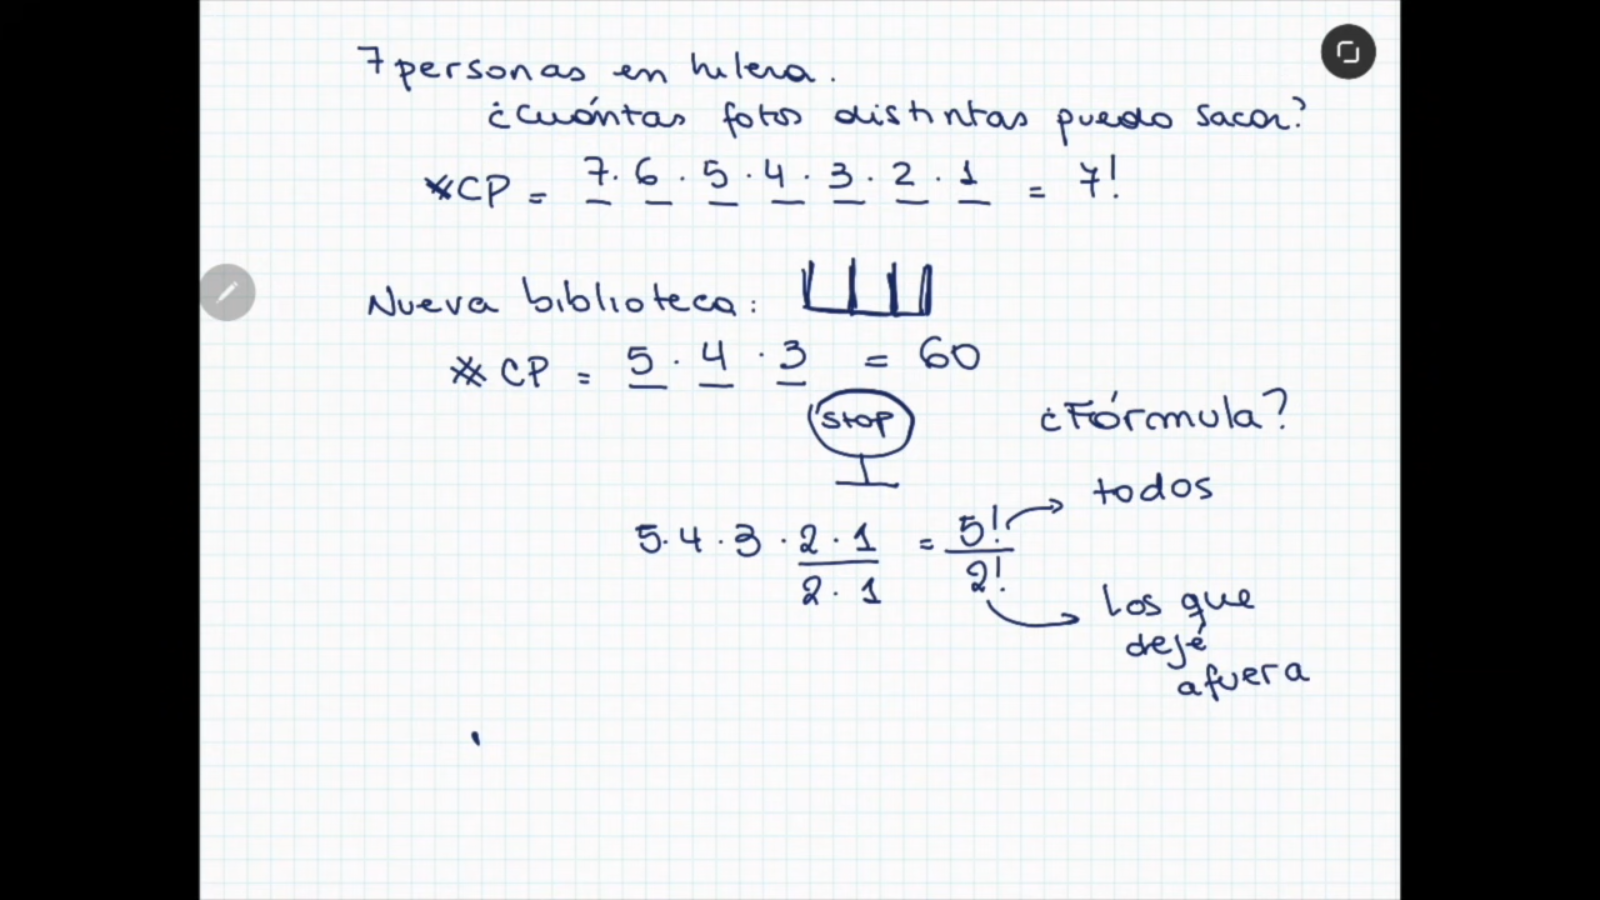 7 personas en hilera.
¿Cuántas fotos distintas puedo sacar?
*CP = 7 · 6 · 5 · 4 · 3 · 2 · 1 = 7!
Nueva biblioteca:
*CP = 5 · 4 · 3 = 60
stop
¿Fórmula?
todos
5 · 4 · 3 · 2 · 1 = 5!
2 · 1 2!
los que
dejé
afuera